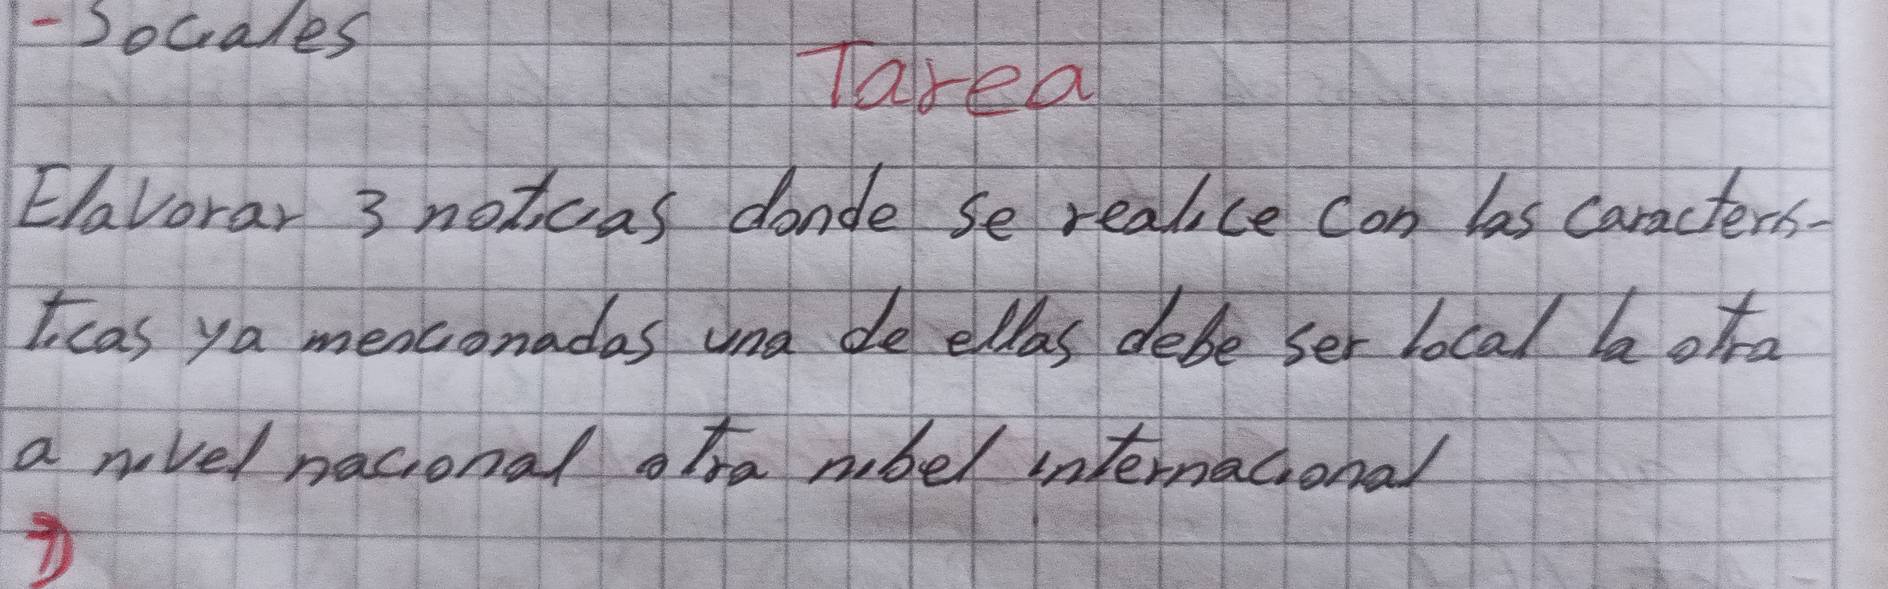 - Sociales
Tarea
Elavorar 3 noticias donde se realice con las caracterís-
ticas ya mencionadas una de ellas debe ser local la otra
a nivel nacional otra nibel internacional
7)